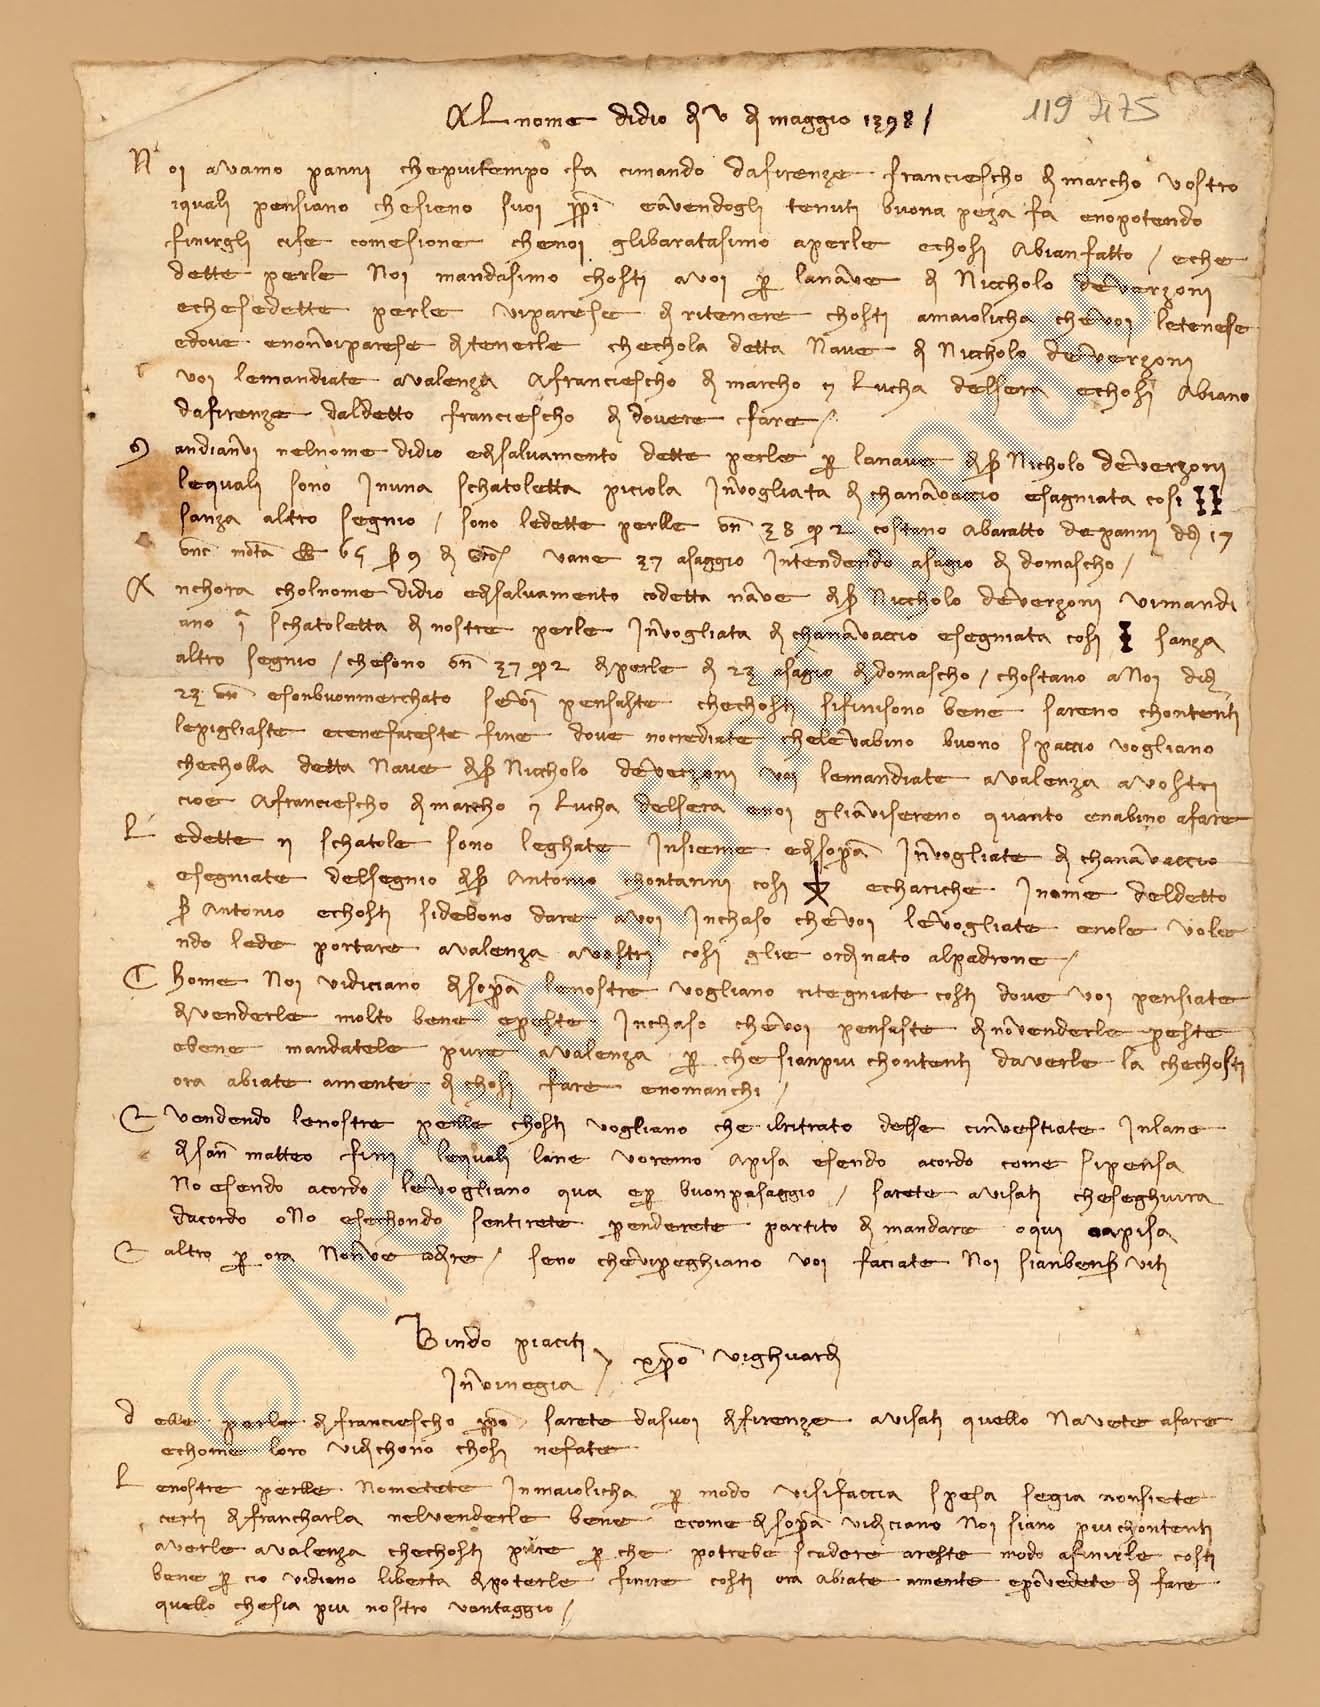 Al nome didio di v di maggio 1398 /
119 475
Noi avamo panni chepiutempo fa cimando dafirenze franciescho di marcho vostro
iquali pensiano chesieno suoi propi eavendogli tenuti buona peza fa enopotendo
finirgli cife comesione chenoi glibaratasimo aperle echosi abianfatto / eche
dette perle noi mandasimo chosti avoi per lanave di Niccholo deverzoni
echesedette perle viparese di ritenere chosti amaiolicha chevoi letenese
edove enonviparese ditenerle chechola detta nave di Niccholo deverzoni
voi lemandiate avalenza afranciescho di marcho e lucha delsera echosi abiano
dafirenze daldetto franciescho di dovere fare /
Mandianvi nelnome didio edisalvamento dette perle per lanave di ser Nicholo deverzoni
lequali sono inuna schatoletta piciola invogliata di chanavaccio esagniata cosi
sanza altro segnio / sono ledette perlle on 38 qr 2 costano abaratto depanni dd 17
vane 37 asaggio intendendo asagio di domascho /
Anchora cholnome didio edisalvamento codetta nave di ser Niccholo deverzoni vimandi
ano i schatoletta di nostre perle invogliata di chanavaccio esegniata cosi sanza
altro segnio / chesono on 37 qr 2 diperle di 23 asagio didomascho / chostano anoi
23 on esonbuonmerchato sevoi pensaste chechosti sifinisono bene sareno chontenti
lepigliaste ecenefaceste fine dove nocrediate chelevabino buono spaccio vogliano
checholla detta nave di ser Niccholo deverzoni voi lemandiate avalenza avostri
cioe afranciescho di marcho e lucha delsera enoi gliavisereno quanto enabino afare
Ledette ii schatole sono leghate insieme edisopra invogliate di chanavaccio
esegniate delsegnio di ser Antonio chontarini cosi echariche inome deldetto
ser Antonio echosti sidebono dare avoi inchaso chevoi levogliate enole vole
ndo lede portare avalenza avostri cosi glie ordinato alpadrone /
Chome noi vidiciano disopra lenostre vogliano ritegniate costi dove voi pensiate
divenderle molto bene epeste inchaso chevoi pensaste dinvenderle peste
ebene mandatele pure avalenza per che sianpiu chontenti daverle la chechosti
ora abiate amente di chosi fare enomanchi /
E vendendo lenostre perlle chosti vogliano che ilritrato desse cinvestiate inlane
disan matteo fini lequali lane voremo apisa esendo acordo come sipensa
no esendo acordo levogliano qua eper buonpasaggio / sarete avisati cheseghuira
dacordo ono esechondo sentirete penderete partito di mandare oqui oapisa
E altro per ora nonve adire / seno chevipreghiano voi faciate noi sianbenser viti
Bindo piaciti
xpofano vighuardi
Invinegia
delle perle difranciescho propio sarete dasuoi difirenze avisati quello navete afare
echome loro vidichono chosi nefate
Lenostre perlle nometete inmaiolicha per modo visifaccia spesa segia nonsiete
certi difrancharla nelvenderle bene ecome disopra vidiciano noi siano piuchontenti
averle avalenza chechosti pure per che potrebe scadere areste modo afinirle costi
bene per cio vidiano liberta dipoterle finire costi ora abiate amente eprovedete di fare
quello chesia piu nostro vantaggio /